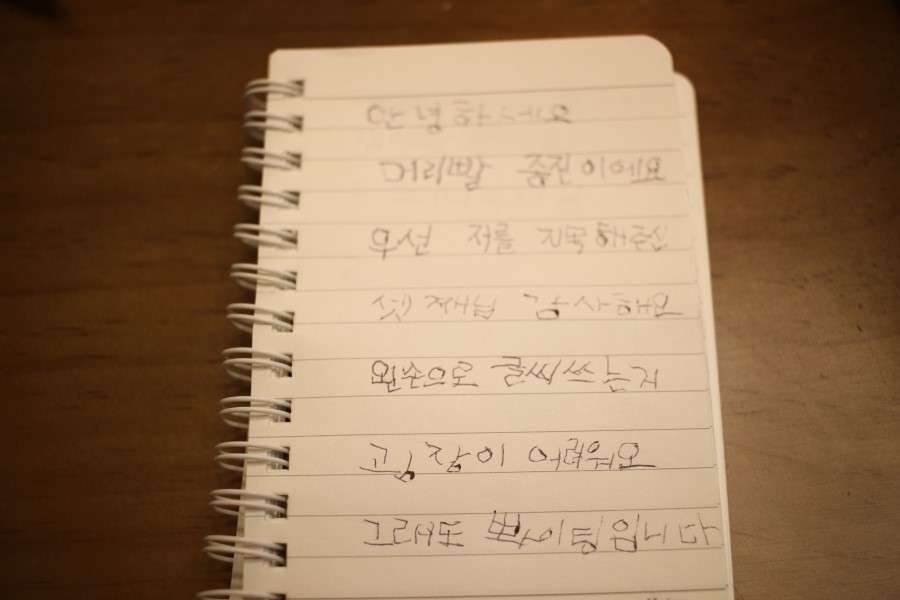 안녕하세요
머리빨 중진이에요
우선 저를 지목해주신
셋째님 감사해요
왼손으로 글씨쓰는지
고 장이 어려워요
그래도 빠이팅입니다